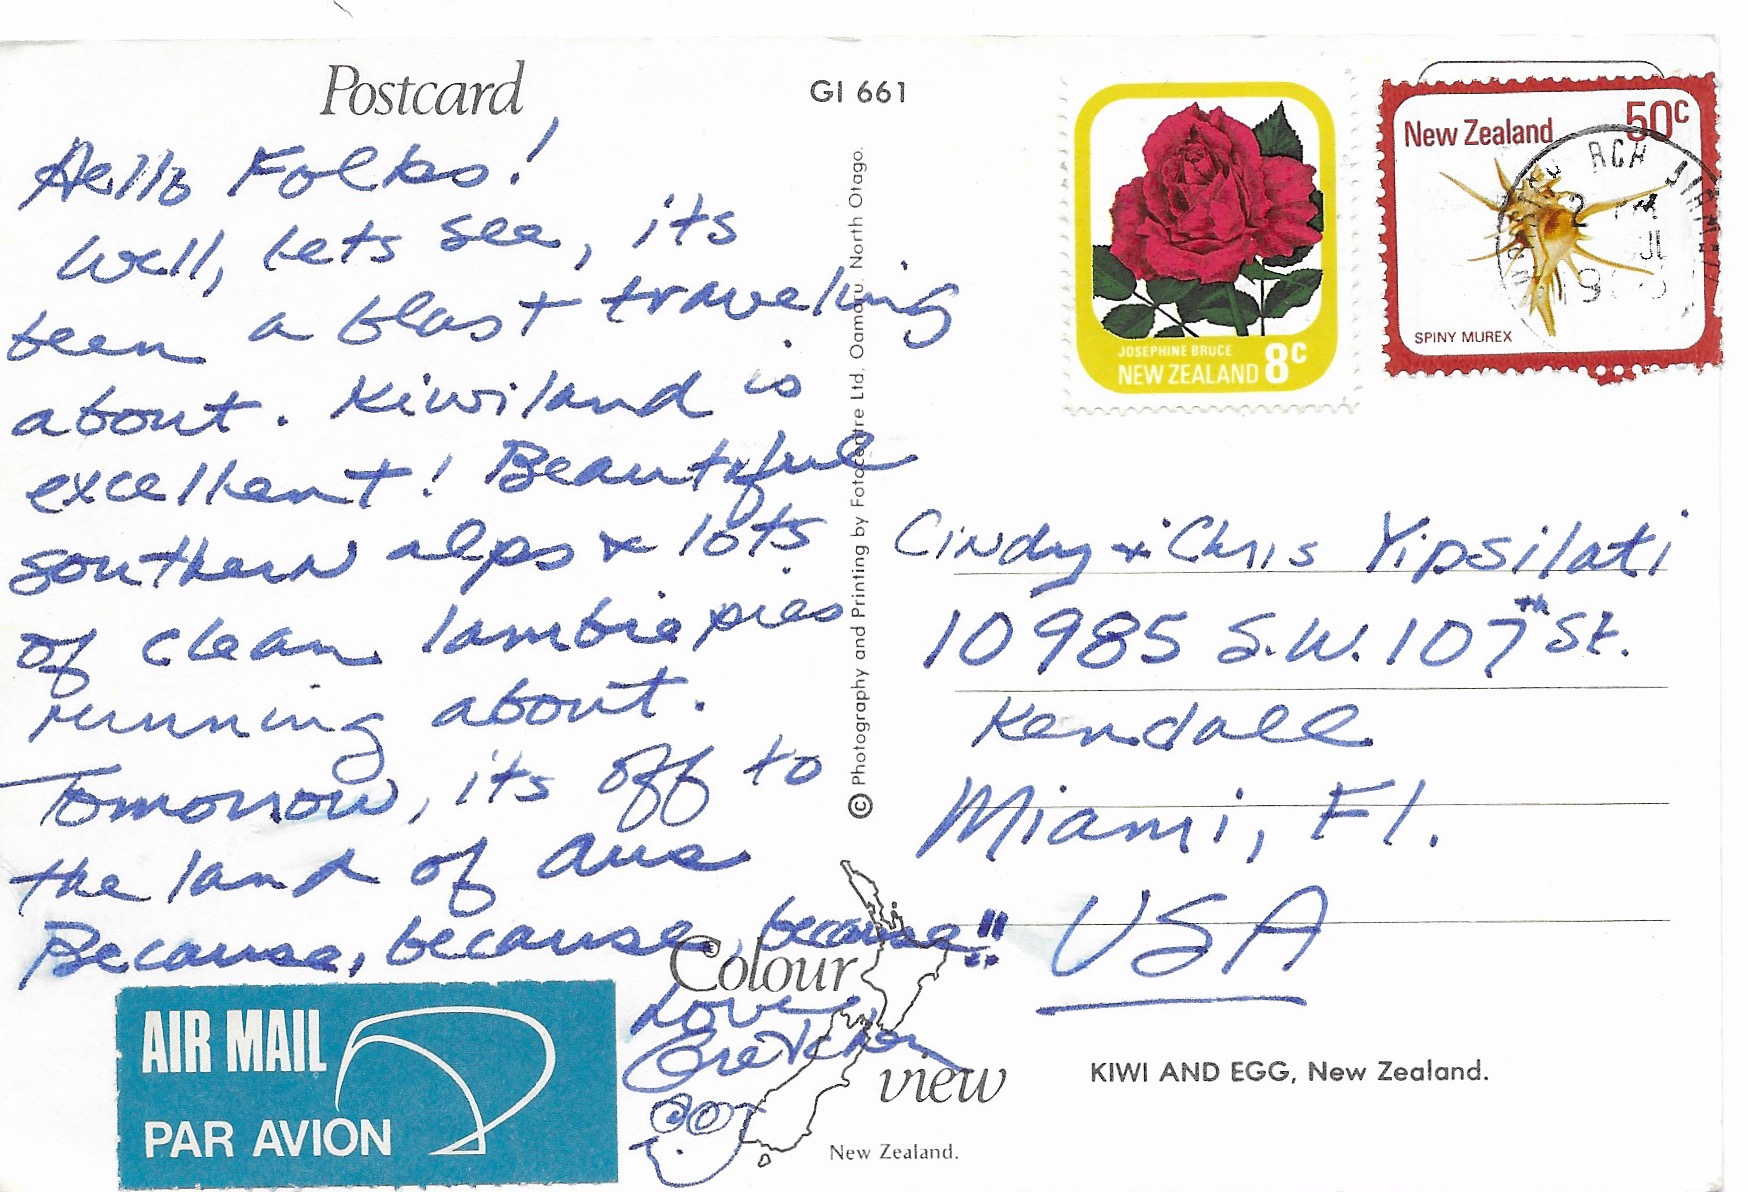 Postcard
GI 661
Hello Folks!
Well, lets see, its
been a blast traveling
about. Kiwiland is
excellent! Beautiful
southern alps & lots
of clean lambie pies
running about.
Tomorrow, its off to
the land of Aus
Because, because, because"!!
Love,
Gretchen
© Photography and Printing by Fotocentre Ltd, Oamaru, North Otago.
JOSEPHINE BRUCE
NEW ZEALAND 8c
New Zealand 50c
SPINY MUREX
Cindy & Chris Yipsilati
10985 S.W. 107th St.
Kendall
Miami, Fl.
USA
AIR MAIL
PAR AVION
Colour
view
New Zealand.
KIWI AND EGG, New Zealand.